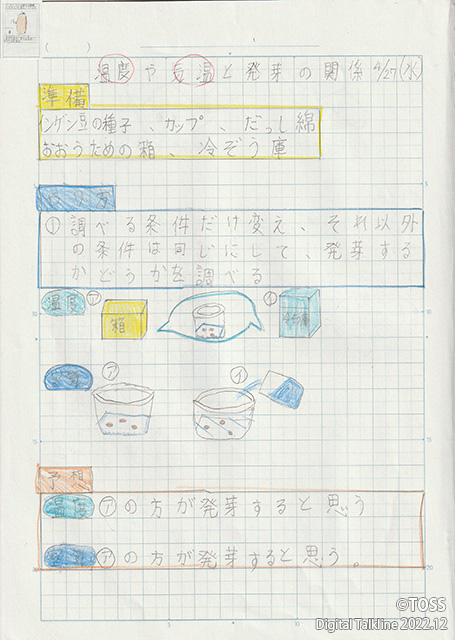 (　　)
温度や気温と発芽の関係 4/27(水)
準備
インゲン豆の種子、カップ、だっし綿
おおうための箱、冷ぞう庫
①調べる条件だけ変え、それ以外
の条件は同じにして、発芽する
かどうかを調べる
温度 ㋐ 箱 ㋑
㋐ ㋑
予想
温度 ㋐の方が発芽すると思う
㋐の方が発芽すると思う。
©TOSS
Digital Talkline 2022.12